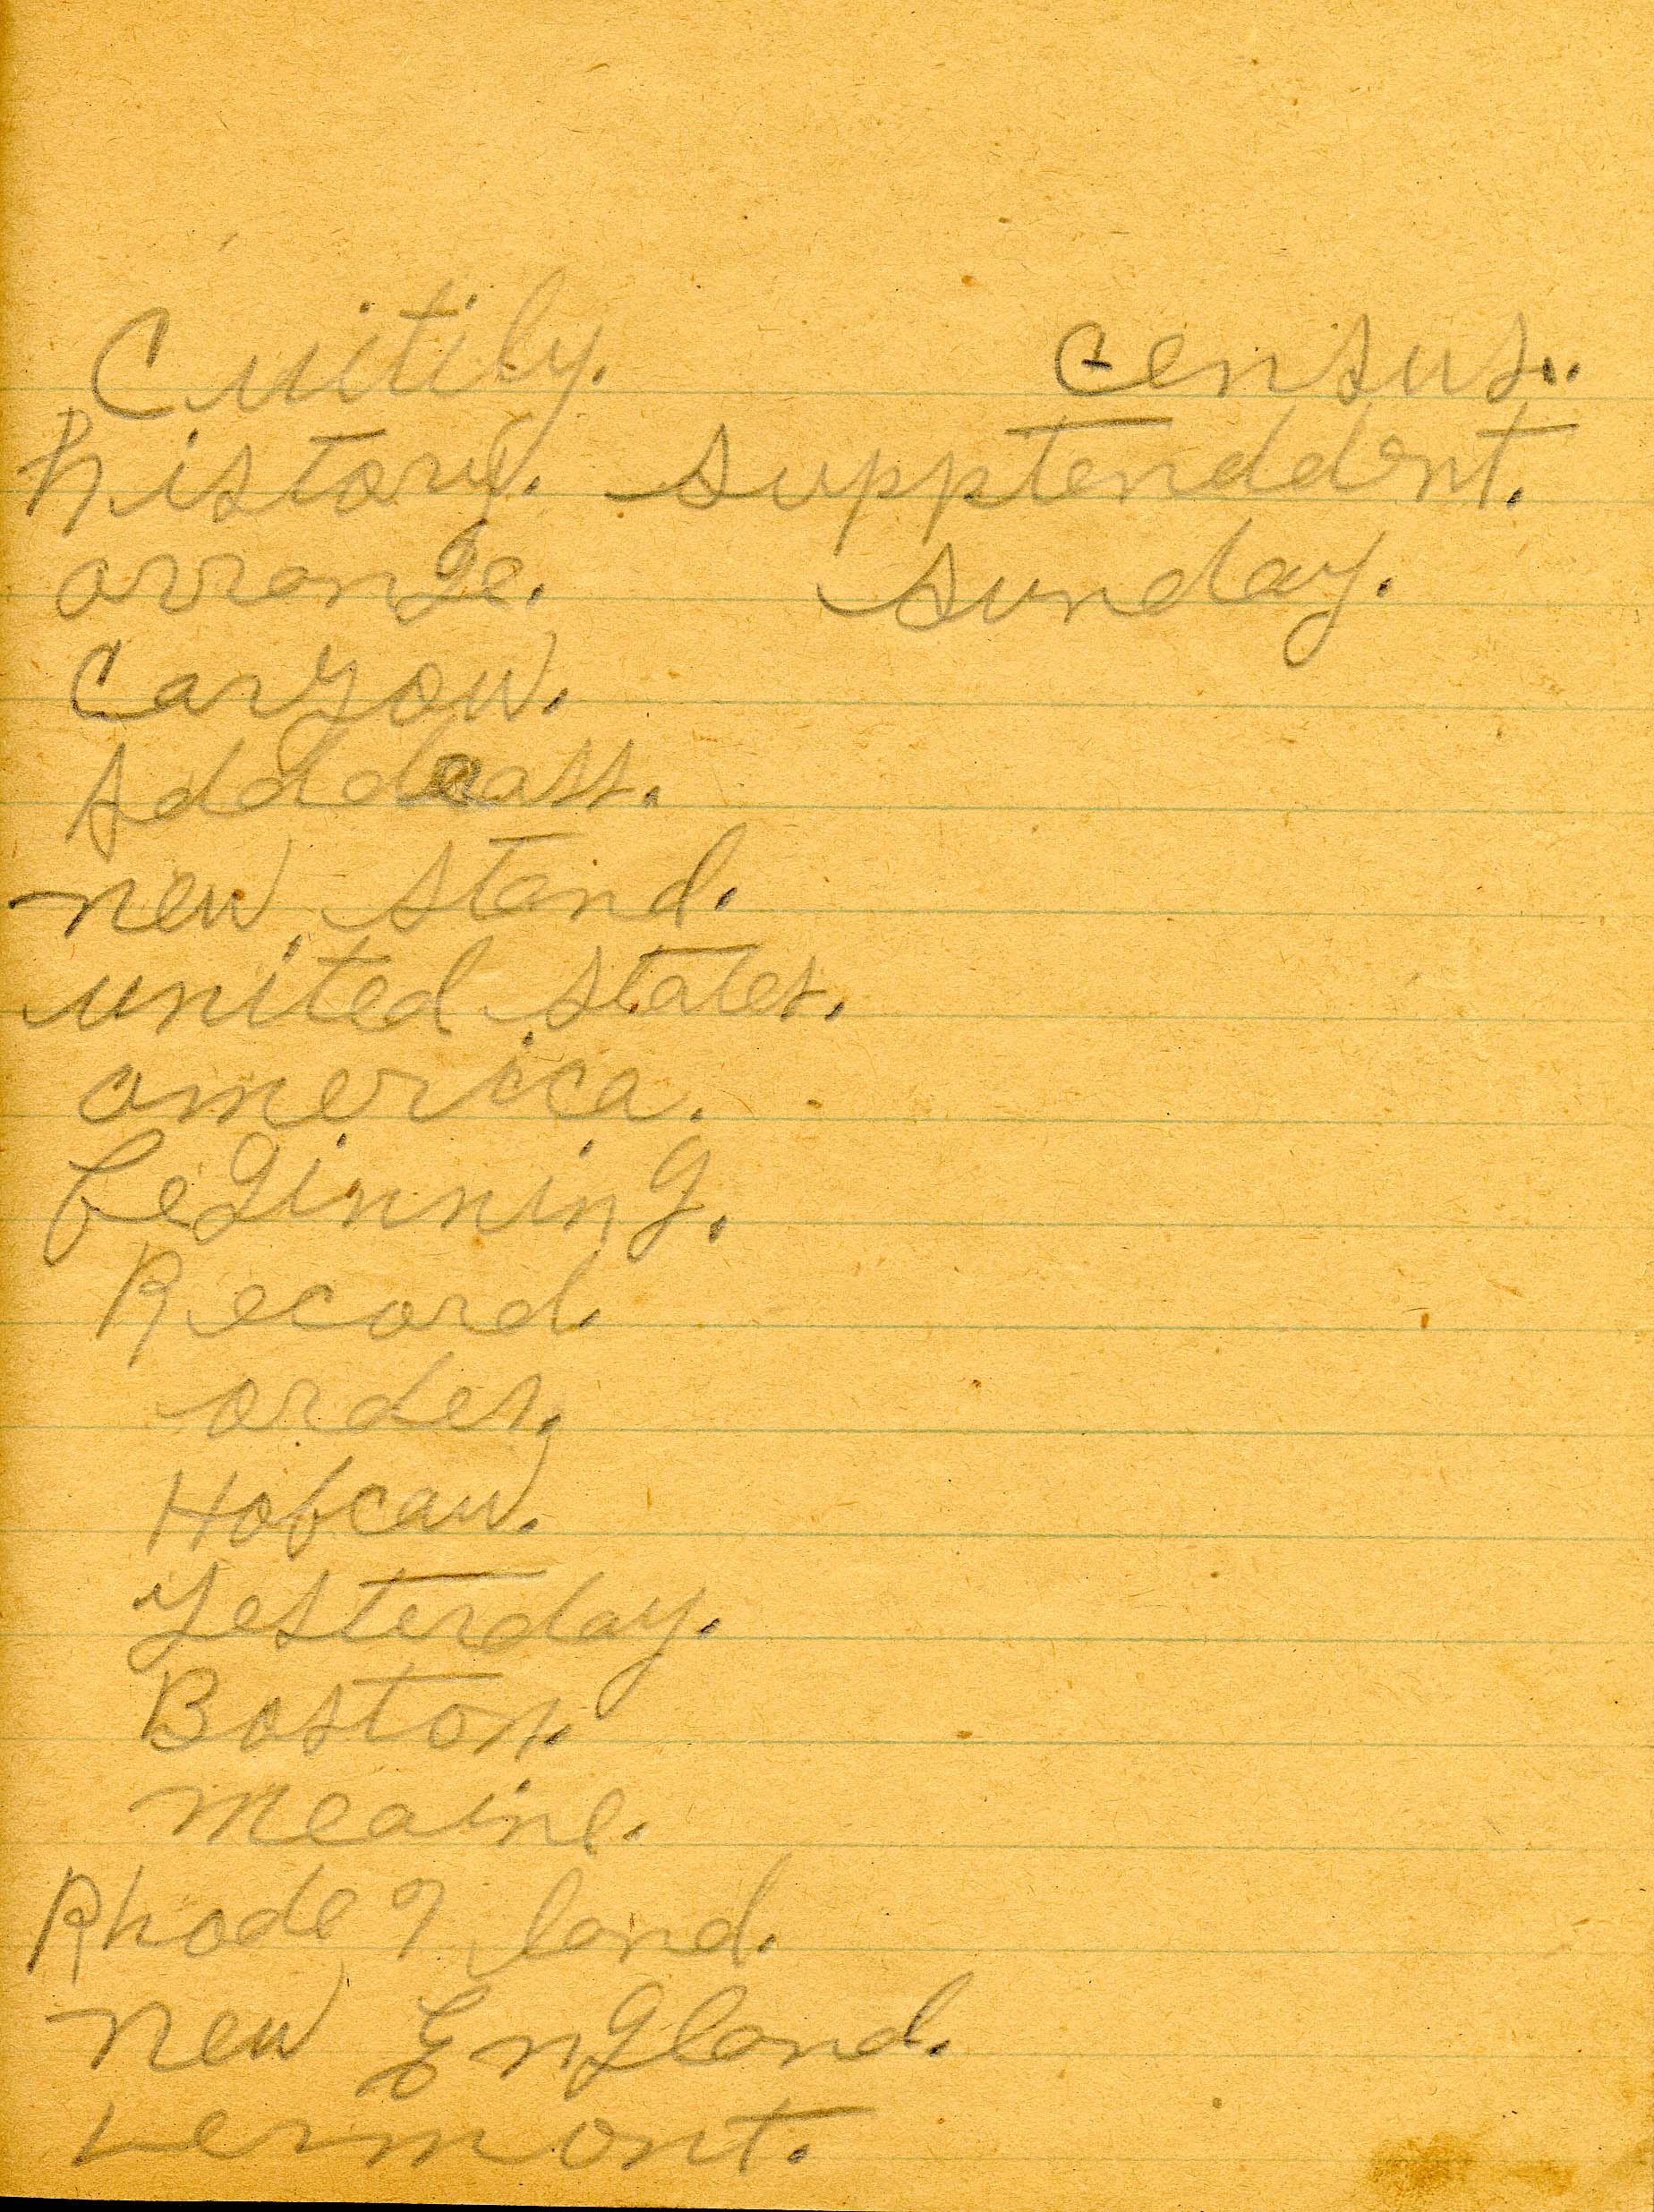 Cuitily. census.
history. supptenddent.
arrange. sunday.
Caryow.
new stand.
united states.
america.
beginning.
Record.
order.
Hobcaw.
yesterday.
Boston.
meaine.
Rhode I land.
new England.
vermont.